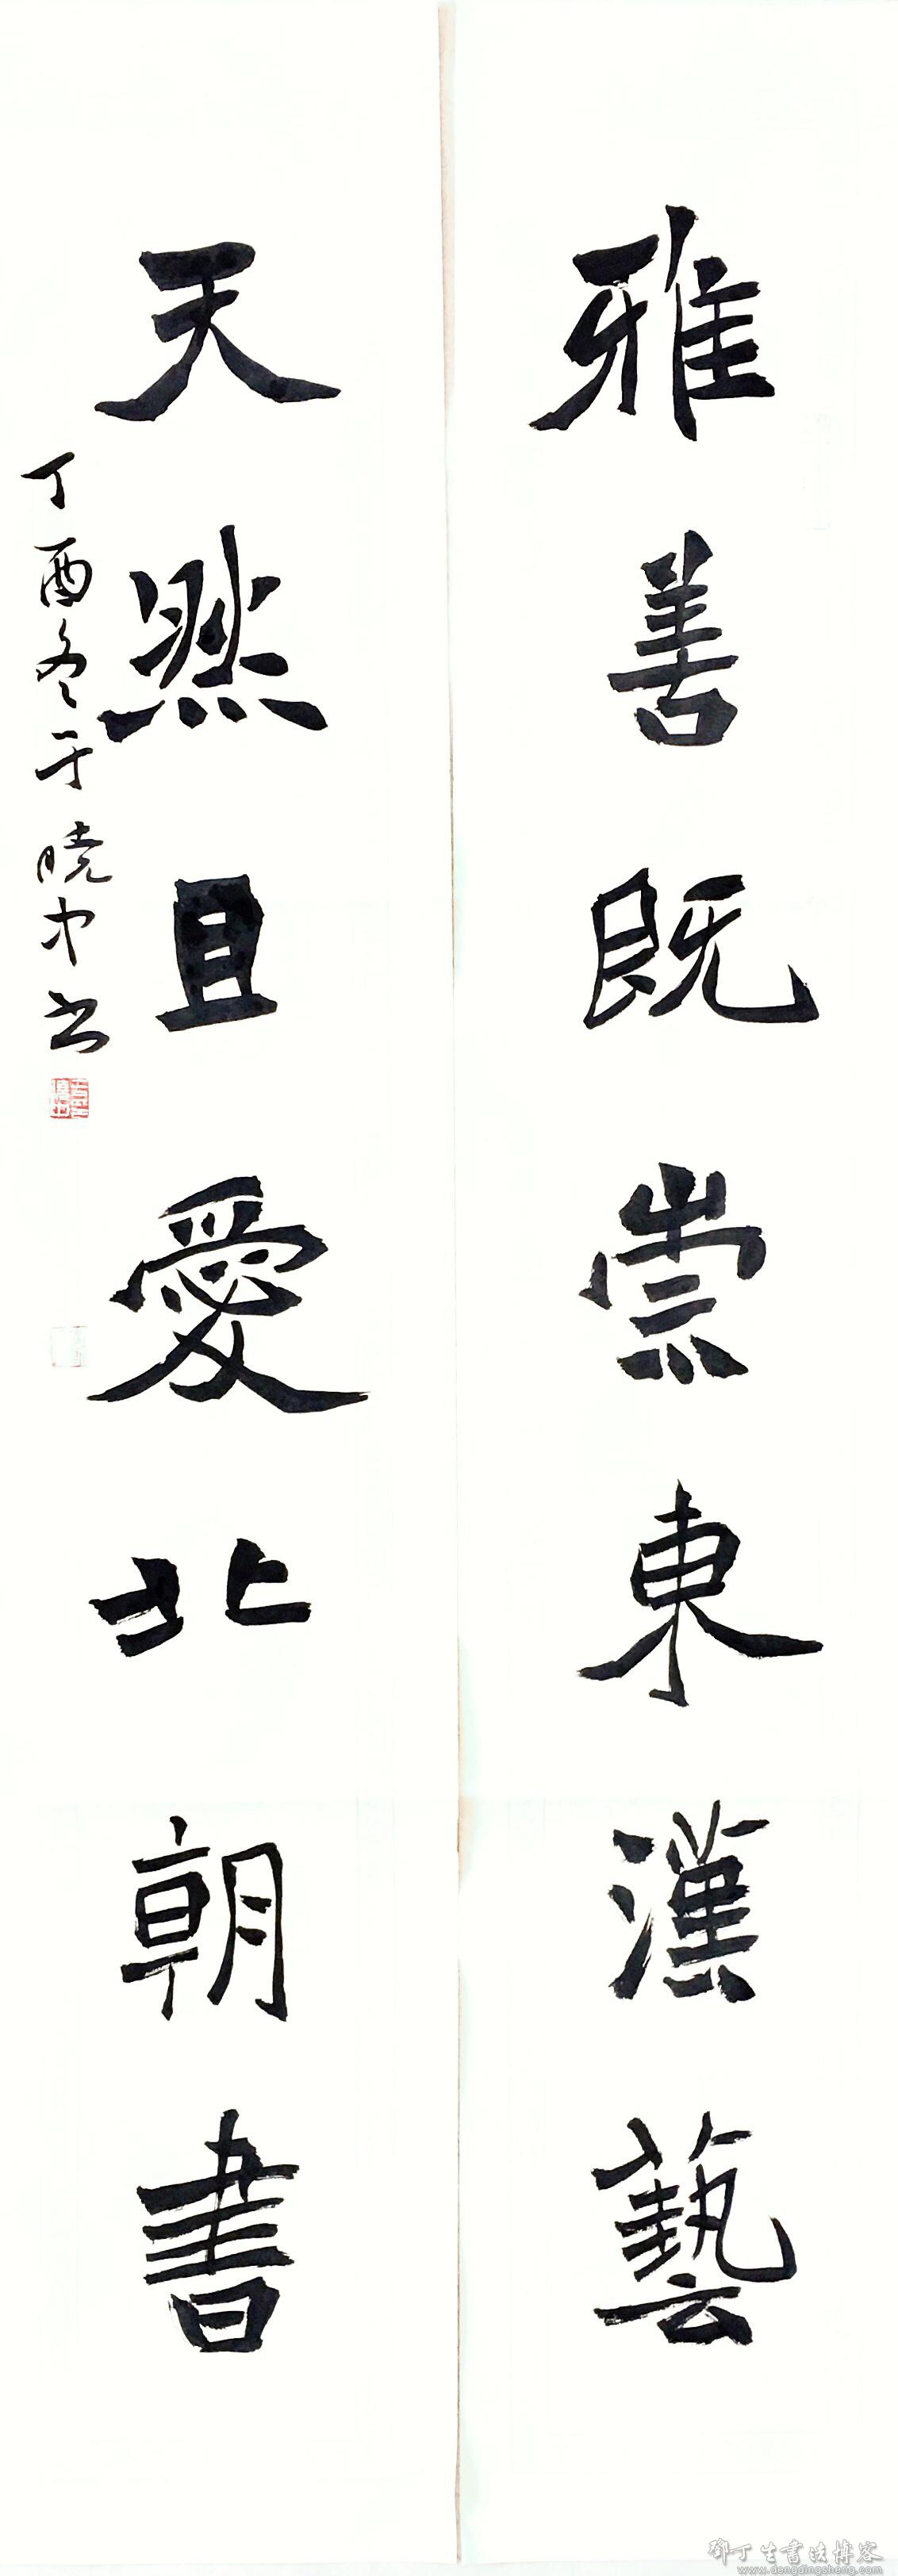 雅善既崇東漢藝
天然且愛北朝書
丁酉冬于曉中书
鄧丁生書法博客
www.dengdingsheng.com